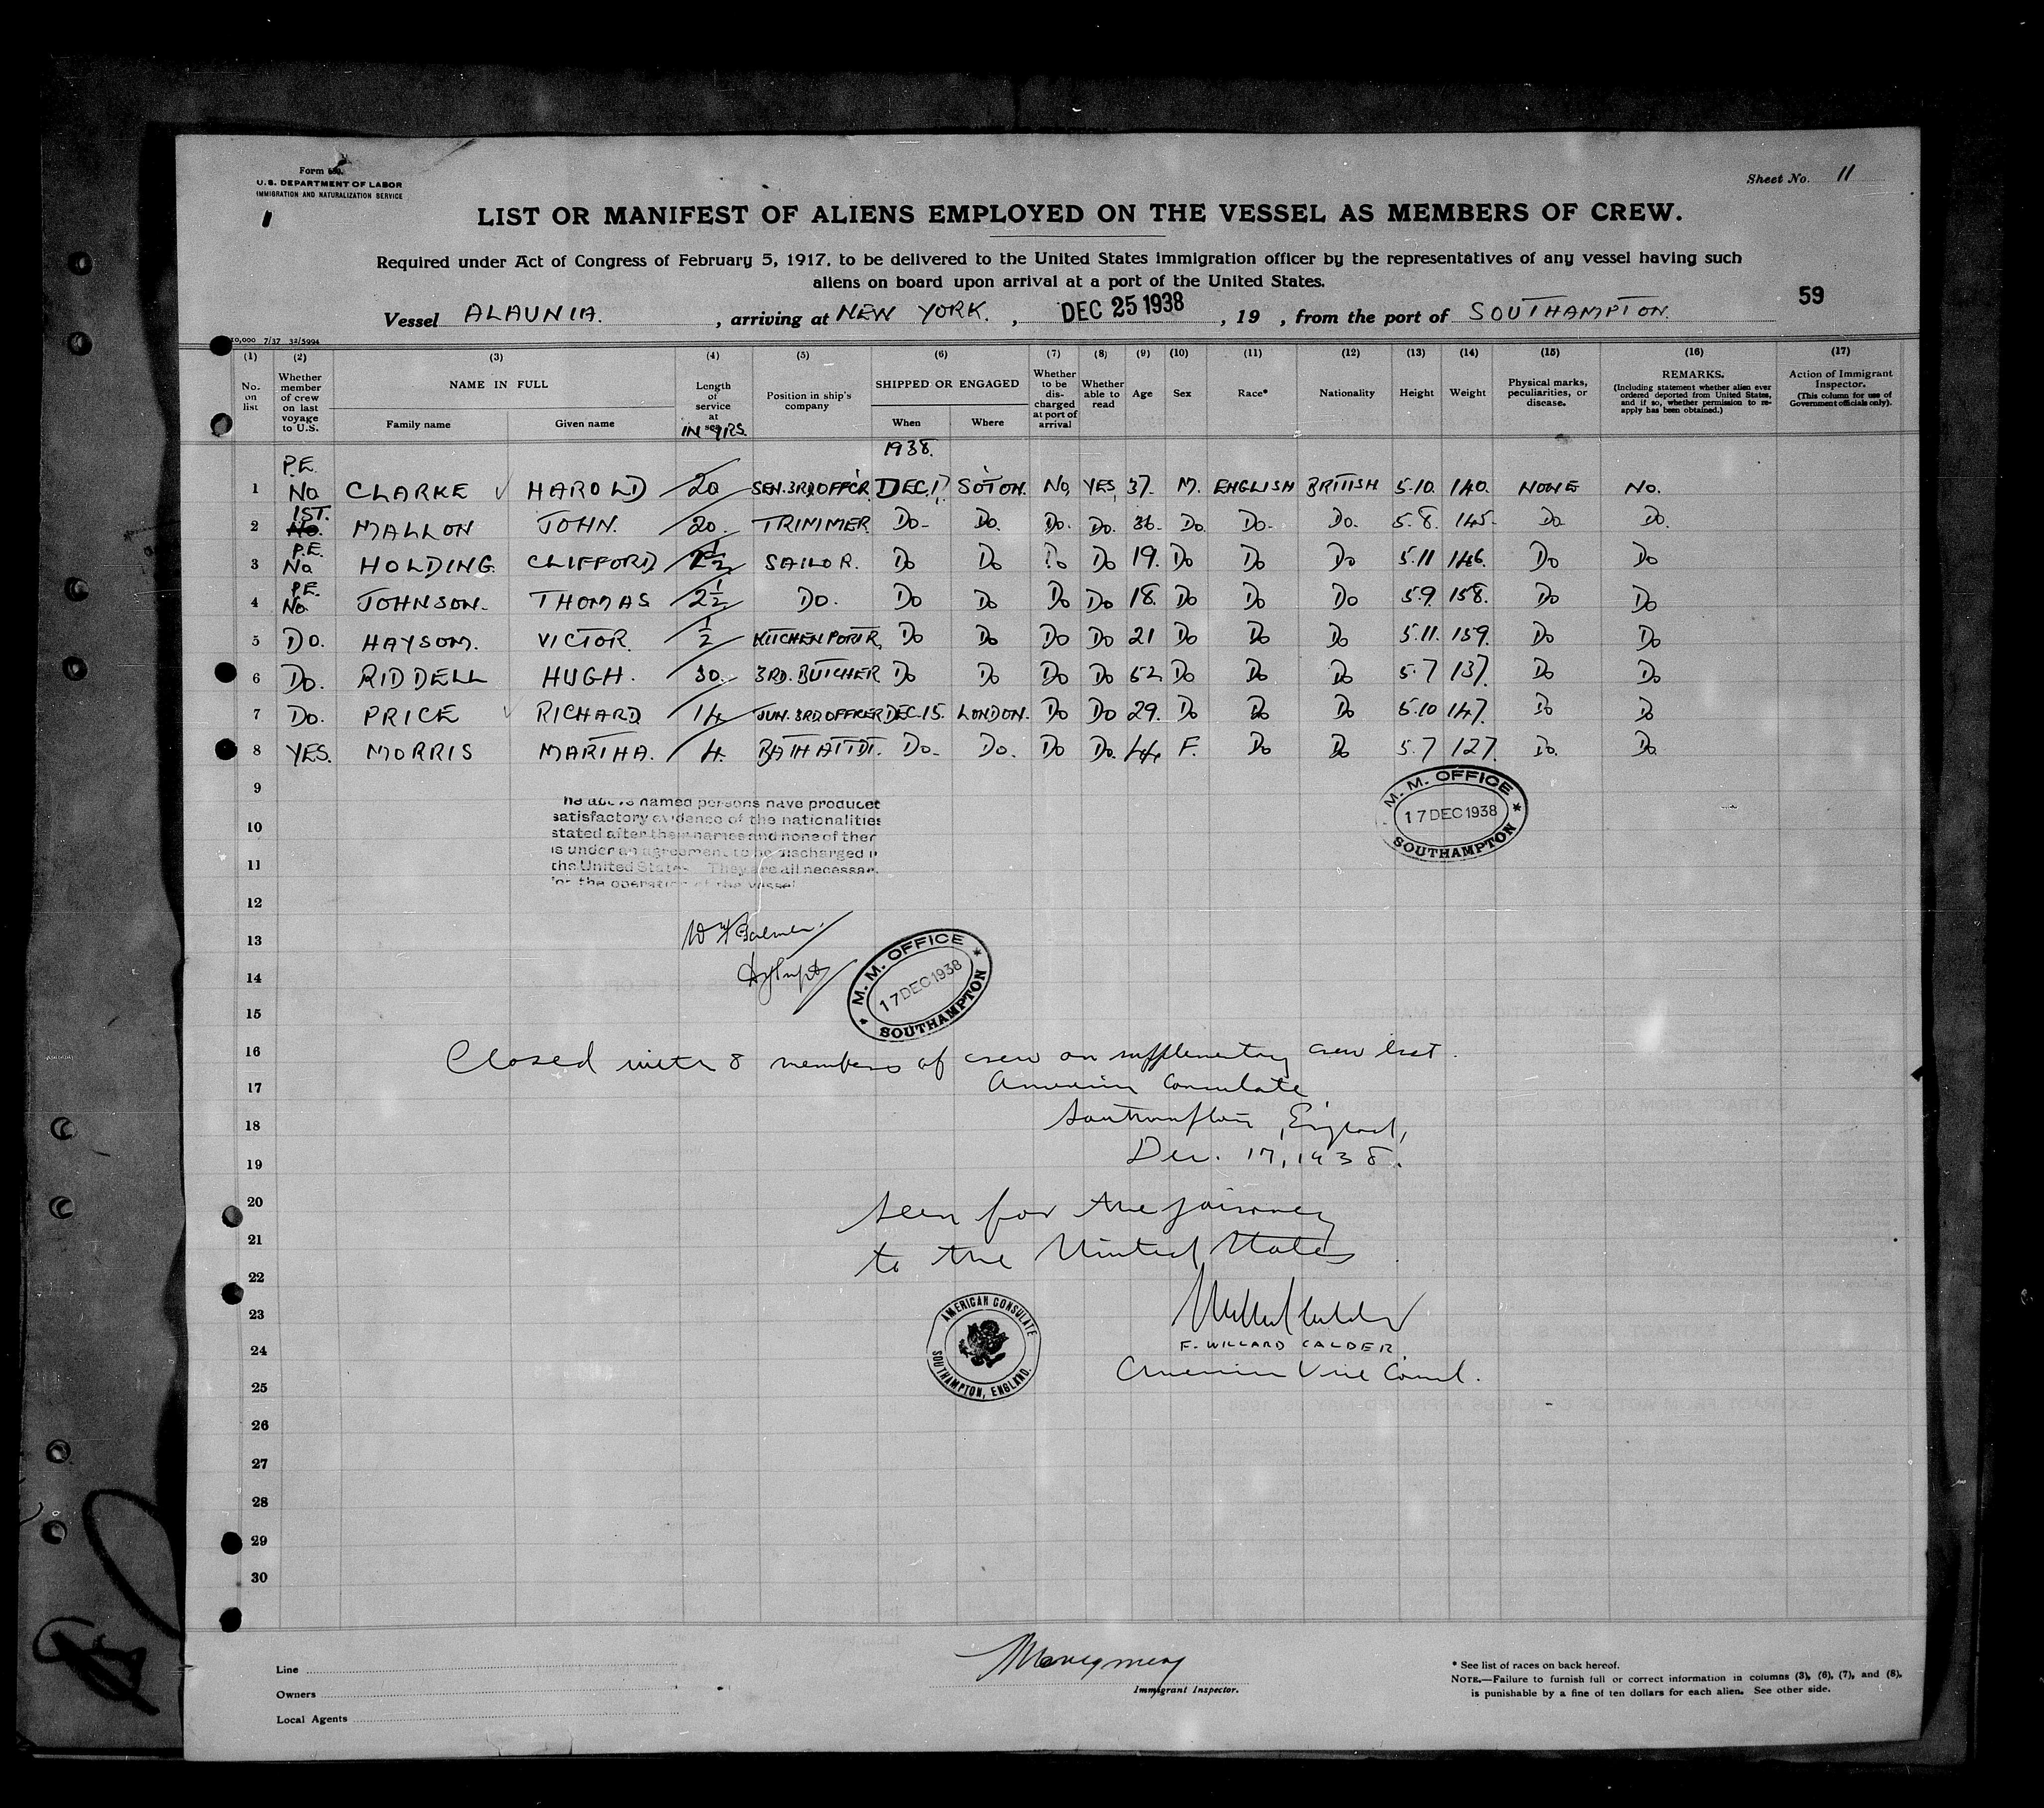 Form 680.
U.S. DEPARTMENT OF LABOR
IMMIGRATION AND NATURALIZATION SERVICE
Sheet No. 11
LIST OR MANIFEST OF ALIENS EMPLOYED ON THE VESSEL AS MEMBERS OF CREW.
Required under Act of Congress of February 5, 1917, to be delivered to the United States immigration officer by the representatives of any vessel having such
aliens on board upon arrival at a port of the United States.
59
Vessel ALAUNIA. , arriving at NEW YORK. , DEC 25 1938 , 19 , from the port of SOUTHAMPTON.
10,000 7/37 32/5994
(1) (2) (3) (4) (5) (6) (7) (8) (9) (10) (11) (12) (13) (14) (15) (16) (17)
No. on list
Whether member of crew on last voyage to U.S.
NAME IN FULL
Family name Given name
Length of service at sea IN YRS.
Position in ship's company
SHIPPED OR ENGAGED
When Where
Whether to be discharged at port of arrival
Whether able to read
Age Sex Race* Nationality Height Weight
Physical marks, peculiarities, or disease.
REMARKS.
(Including statement whether alien ever ordered deported from United States, and if so, whether permission to re-apply has been obtained.)
Action of Immigrant Inspector.
(This column for use of Government officials only).
1938.
P.E.
1 No. CLARKE HAROLD 20 SEN. 3RD OFFCR. DEC. 17 SOTON. No. YES 37. M. ENGLISH BRITISH 5.10. 140. NONE No.
1ST.
2 No. MALLON JOHN. 20. TRIMMER Do. Do. Do. Do. 36. Do. Do. Do. 5.8. 145. Do. Do.
P.E.
3 No. HOLDING. CLIFFORD SAILOR. Do Do Do Do 19. Do Do Do 5.11 146. Do Do
P.E.
4 No. JOHNSON. THOMAS 2½ Do. Do Do Do Do 18. Do Do Do 5.9. 158. Do Do
5 Do. HAYSOM. VICTOR. ½ KITCHEN PORTR. Do Do Do Do 21 Do Do Do 5.11. 159. Do Do
6 Do. RIDDELL HUGH. 30. 3RD. BUTCHER Do Do Do Do 52 Do Do Do 5.7 137. Do Do
7 Do. PRICE RICHARD 14 JUN. 3RD OFFICER DEC. 15. LONDON. Do Do 29. Do Do Do 5.10 147. Do Do
8 YES. MORRIS MARTHA. 4. BATH ATTDT. Do. Do. Do Do. 44 F. Do Do 5.7 127. Do. Do.
9
10
11
12
13
14
15
16
17
18
19
20
21
22
23
24
25
26
27
28
29
30
M. M. OFFICE
17 DEC 1938
SOUTHAMPTON
he above named persons have produced
satisfactory evidence of the nationalities
stated after their names and none of them
is under an agreement to be discharged in
the United States. They are all necessary
for the operation of the vessel
M. M. OFFICE
17 DEC 1938
SOUTHAMPTON
Closed with 8 members of crew on supplementary crew list.
American Consulate
Southampton, England,
Dec. 17, 1938.
Seen for the journey
to the United States
AMERICAN CONSULATE
SOUTHAMPTON, ENGLAND.
F. WILLARD CALDER.
American Vice Consul.
Line
Owners
Local Agents
Immigrant Inspector.
* See list of races on back hereof.
NOTE.—Failure to furnish full or correct information in columns (3), (6), (7), and (8),
is punishable by a fine of ten dollars for each alien. See other side.